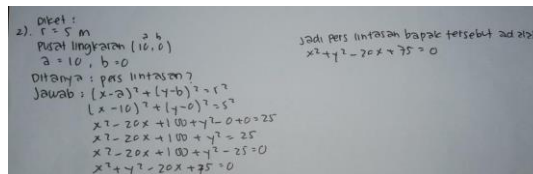 Diket :
2). r = 5 m
a b
Pusat lingkaran (10,0)
a = 10 , b = 0
Ditanya : pers lintasan ?
Jawab : (x-a)² + (y-b)² = r²
(x-10)² + (y-0)² = 5²
x² - 20x + 100 + y² - 0 + 0 = 25
x² - 20x + 100 + y² = 25
x² - 20x + 100 + y² - 25 = 0
x² + y² - 20x + 75 = 0
Jadi pers lintasan bapak tersebut adala
x² + y² - 20x + 75 = 0